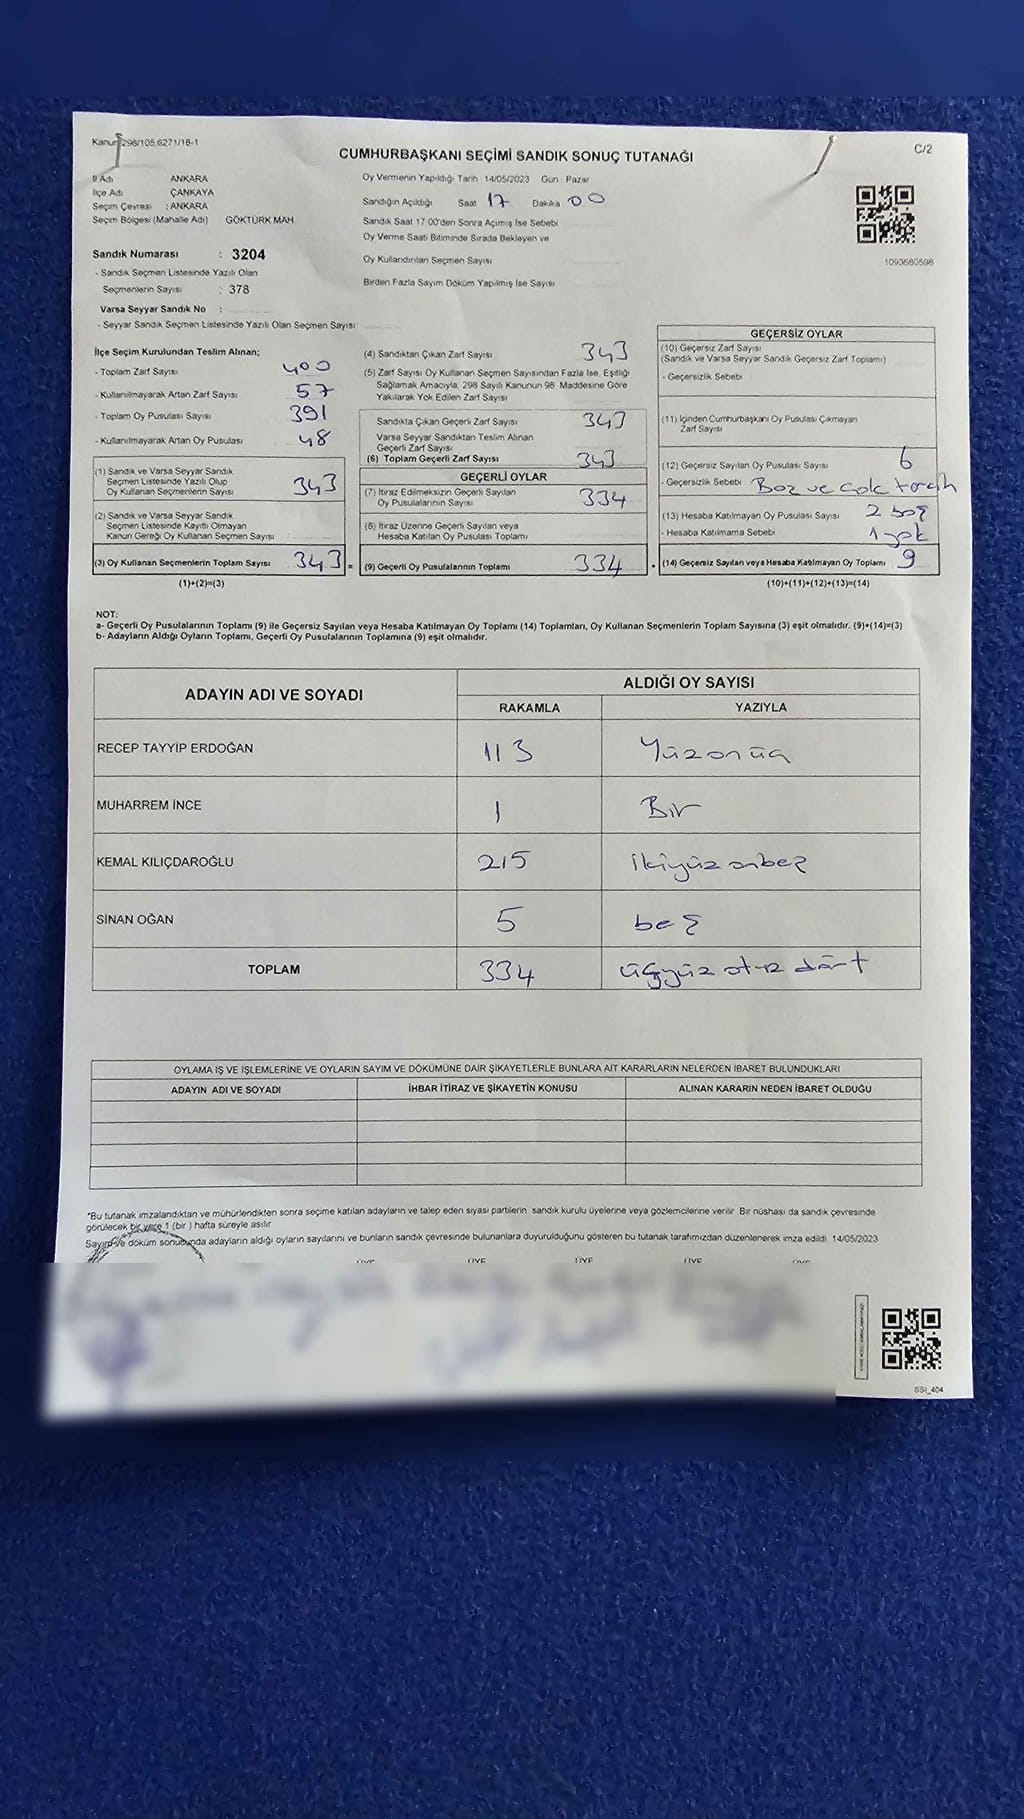 Kanun 298/105,6271/18-1
CUMHURBAŞKANI SEÇİMİ SANDIK SONUÇ TUTANAĞI
C/2
İl Adı ANKARA
İlçe Adı ÇANKAYA
Seçim Çevresi : ANKARA
Seçim Bölgesi (Mahalle Adı) GÖKTÜRK MAH
Oy Vermenin Yapıldığı Tarih 14/05/2023 Gün Pazar
Sandığın Açıldığı Saat 17 Dakika 00
Sandık Saat 17.00'den Sonra Açılmış İse Sebebi
Oy Verme Saati Bitiminde Sırada Bekleyen ve
Oy Kullandırılan Seçmen Sayısı
Birden Fazla Sayım Döküm Yapılmış İse Sayısı
1093680598
Sandık Numarası : 3204
- Sandık Seçmen Listesinde Yazılı Olan
Seçmenlerin Sayısı : 378
Varsa Seyyar Sandık No :
- Seyyar Sandık Seçmen Listesinde Yazılı Olan Seçmen Sayısı
İlçe Seçim Kurulundan Teslim Alınan;
- Toplam Zarf Sayısı 400
- Kullanılmayarak Artan Zarf Sayısı 57
- Toplam Oy Pusulası Sayısı 391
- Kullanılmayarak Artan Oy Pusulası 48
(1) Sandık ve Varsa Seyyar Sandık
Seçmen Listesinde Yazılı Olup
Oy Kullanan Seçmenlerin Sayısı 343
(2) Sandık ve Varsa Seyyar Sandık
Seçmen Listesinde Kayıtlı Olmayan
Kanun Gereği Oy Kullanan Seçmen Sayısı
(3) Oy Kullanan Seçmenlerin Toplam Sayısı 343 =
(1)+(2)=(3)
(4) Sandıktan Çıkan Zarf Sayısı 343
(5) Zarf Sayısı Oy Kullanan Seçmen Sayısından Fazla İse, Eşitliği
Sağlamak Amacıyla, 298 Sayılı Kanunun 98. Maddesine Göre
Yakılarak Yok Edilen Zarf Sayısı
Sandıkta Çıkan Geçerli Zarf Sayısı 343
Varsa Seyyar Sandıktan Teslim Alınan
Geçerli Zarf Sayısı
(6) Toplam Geçerli Zarf Sayısı 343
GEÇERLİ OYLAR
(7) İtiraz Edilmeksizin Geçerli Sayılan
Oy Pusulalarının Sayısı 334
(8) İtiraz Üzerine Geçerli Sayılan veya
Hesaba Katılan Oy Pusulası Toplamı
(9) Geçerli Oy Pusulalarının Toplamı 334 +
GEÇERSİZ OYLAR
(10) Geçersiz Zarf Sayısı
(Sandık ve Varsa Seyyar Sandık Geçersiz Zarf Toplamı)
- Geçersizlik Sebebi
(11) İçinden Cumhurbaşkanı Oy Pusulası Çıkmayan
Zarf Sayısı
(12) Geçersiz Sayılan Oy Pusulası Sayısı 6
- Geçersizlik Sebebi Boz ve çok tercih
(13) Hesaba Katılmayan Oy Pusulası Sayısı 2 boş
- Hesaba Katılmama Sebebi 1 yok
(14) Geçersiz Sayılan veya Hesaba Katılmayan Oy Toplamı 9
(10)+(11)+(12)+(13)=(14)
NOT:
a- Geçerli Oy Pusulalarının Toplamı (9) ile Geçersiz Sayılan veya Hesaba Katılmayan Oy Toplamı (14) Toplamları, Oy Kullanan Seçmenlerin Toplam Sayısına (3) eşit olmalıdır. (9)+(14)=(3)
b- Adayların Aldığı Oyların Toplamı, Geçerli Oy Pusulalarının Toplamına (9) eşit olmalıdır.
ADAYIN ADI VE SOYADI ALDIĞI OY SAYISI
RAKAMLA YAZIYLA
RECEP TAYYİP ERDOĞAN 113 Yüzonüç
MUHARREM İNCE 1 Bir
KEMAL KILIÇDAROĞLU 215 ikiyüz onbeş
SİNAN OĞAN 5 beş
TOPLAM 334 üçyüz otuz dört
OYLAMA İŞ VE İŞLEMLERİNE VE OYLARIN SAYIM VE DÖKÜMÜNE DAİR ŞİKAYETLERLE BUNLARA AİT KARARLARIN NELERDEN İBARET BULUNDUKLARI
ADAYIN ADI VE SOYADI İHBAR İTİRAZ VE ŞİKAYETİN KONUSU ALINAN KARARIN NEDEN İBARET OLDUĞU
*Bu tutanak imzalandıktan ve mühürlendikten sonra seçime katılan adayların ve talep eden siyasi partilerin sandık kurulu üyelerine veya gözlemcilerine verilir. Bir nüshası da sandık çevresinde
görülecek bir yere 1 (bir) hafta süreyle asılır
Sayım ve döküm sonucunda adayların aldığı oyların sayılarını ve bunların sandık çevresinde bulunanlara duyurulduğunu gösteren bu tutanak tarafımızdan düzenlenerek imza edildi. 14/05/2023
ÜYE ÜYE ÜYE ÜYE
SSI_404